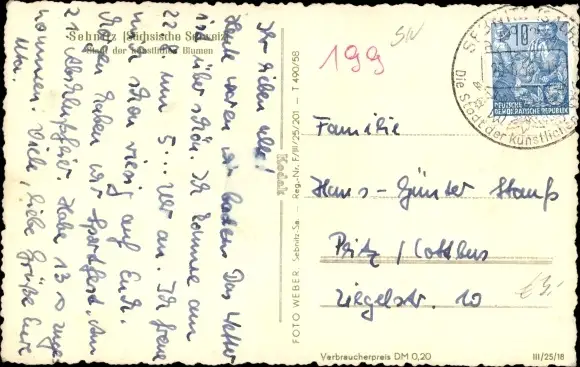 Sebnitz (Sächsische Schweiz)
Stadt der künstlichen Blumen
Ihr lieben alle!
Heute waren wir baden. Das Wetter
ist über schön. Ich komme am
22. um 5... Uhr an. Ich freue
mich schon riesig auf Euch.
Morgen haben wir Sportfest. Am
21. Abschlußfeier. Habe 13 zuge-
nommen. Viele, liebe Grüße Eure
Uta.
Kodak
FOTO WEBER, Sebnitz-Sa. Reg.-Nr. F/III/25/201 - T 490/58
199
SEBNITZ (SACHS
Die Stadt der künstlichen
10
DEUTSCHE
DEMOKRATISCHE REPUBLIK
Familie
Hans-Günter
/Cottbus
Ziegelstr. 10
Verbraucherpreis DM 0,20
III/25/18